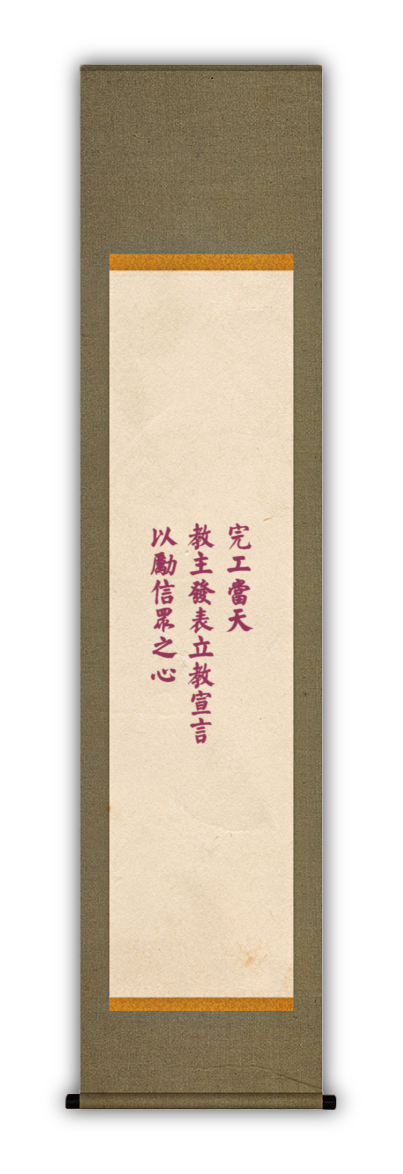 完工當天
教主發表立教宣言
以勵信眾之心